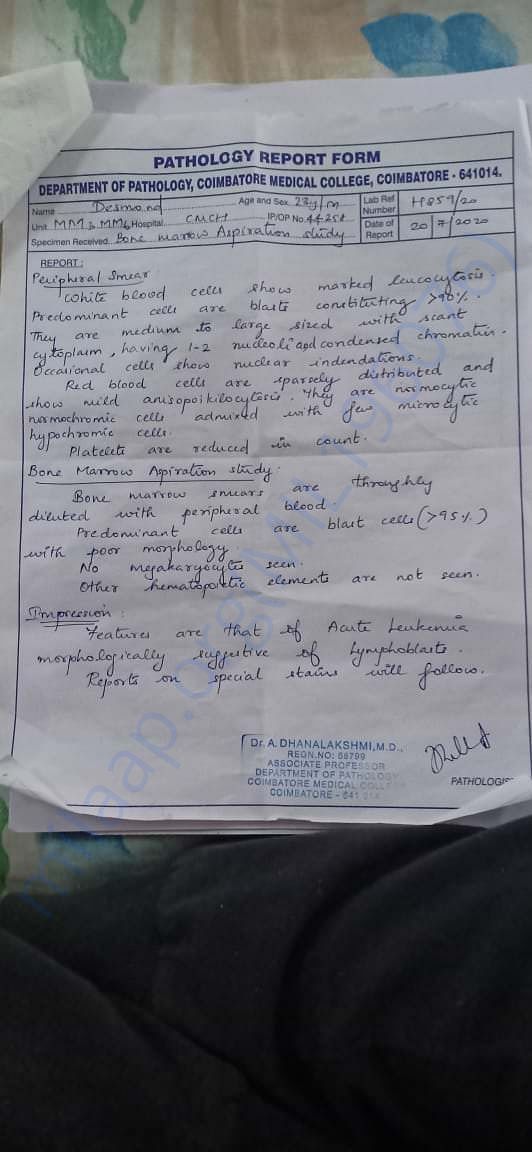 PATHOLOGY REPORT FORM
DEPARTMENT OF PATHOLOGY, COIMBATORE MEDICAL COLLEGE, COIMBATORE - 641014.
Name Desmond Age and Sex 23y/m Lab Ref Number H859/20
Unit Hospital CMCH IP/OP No. Date of Report 20/7/2020
Specimen Received Bone marrow Aspiration study
REPORT :
Peripheral Smear
White blood cells show marked leucocytosis.
Predominant cells are blasts constituting >90%.
They are medium to large sized with scant
cytoplasm, having 1-2 nucleoli and condensed chromatin.
Occasional cells show nuclear indendations.
Red blood cells are sparsely distributed and
show mild anisopoikilocytosis. They are normocytic
normochromic cells admixed with few microcytic
hypochromic cells.
Platelets are reduced in count.
Bone Marrow Aspiration study:
Bone marrow smears are throughly
diluted with peripheral blood.
Predominant cells are blast cells (>95%)
with poor morphology.
No megakaryocytes seen.
Other hematopoietic elements are not seen.
Impression :
Features are that of Acute Leukemia
morphologically suggestive of Lymphoblasts.
Reports on special stains will follow.
Dr. A. DHANALAKSHMI, M.D.,
REGN.NO: 58799
ASSOCIATE PROFESSOR
DEPARTMENT OF PATHOLOGY
COIMBATORE MEDICAL COLLEGE
COIMBATORE - 641 014
PATHOLOGIS
milaap.org